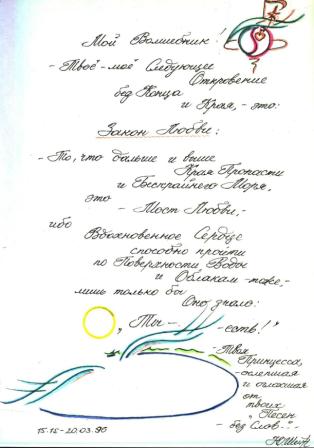 Мой Волшебник!
- Твоё-моё Следующее
Откровение
без Конца
и Края, - это:
Закон Любви:
- То, что дальше и выше
Края Пропасти
и Бескрайнего Моря,
это
- Мост Любви, -
ибо
Вдохновенное Сердце
способно пройти
по Поверхности Воды
и Облакам - тоже -
лишь только бы
Оно знало:
„Ты -
- есть!"
- Твоя
Принцесса,
- ослепшая
и оглохшая
от
твоих
„Песен
- без Слов."-
15.15-20.03.96